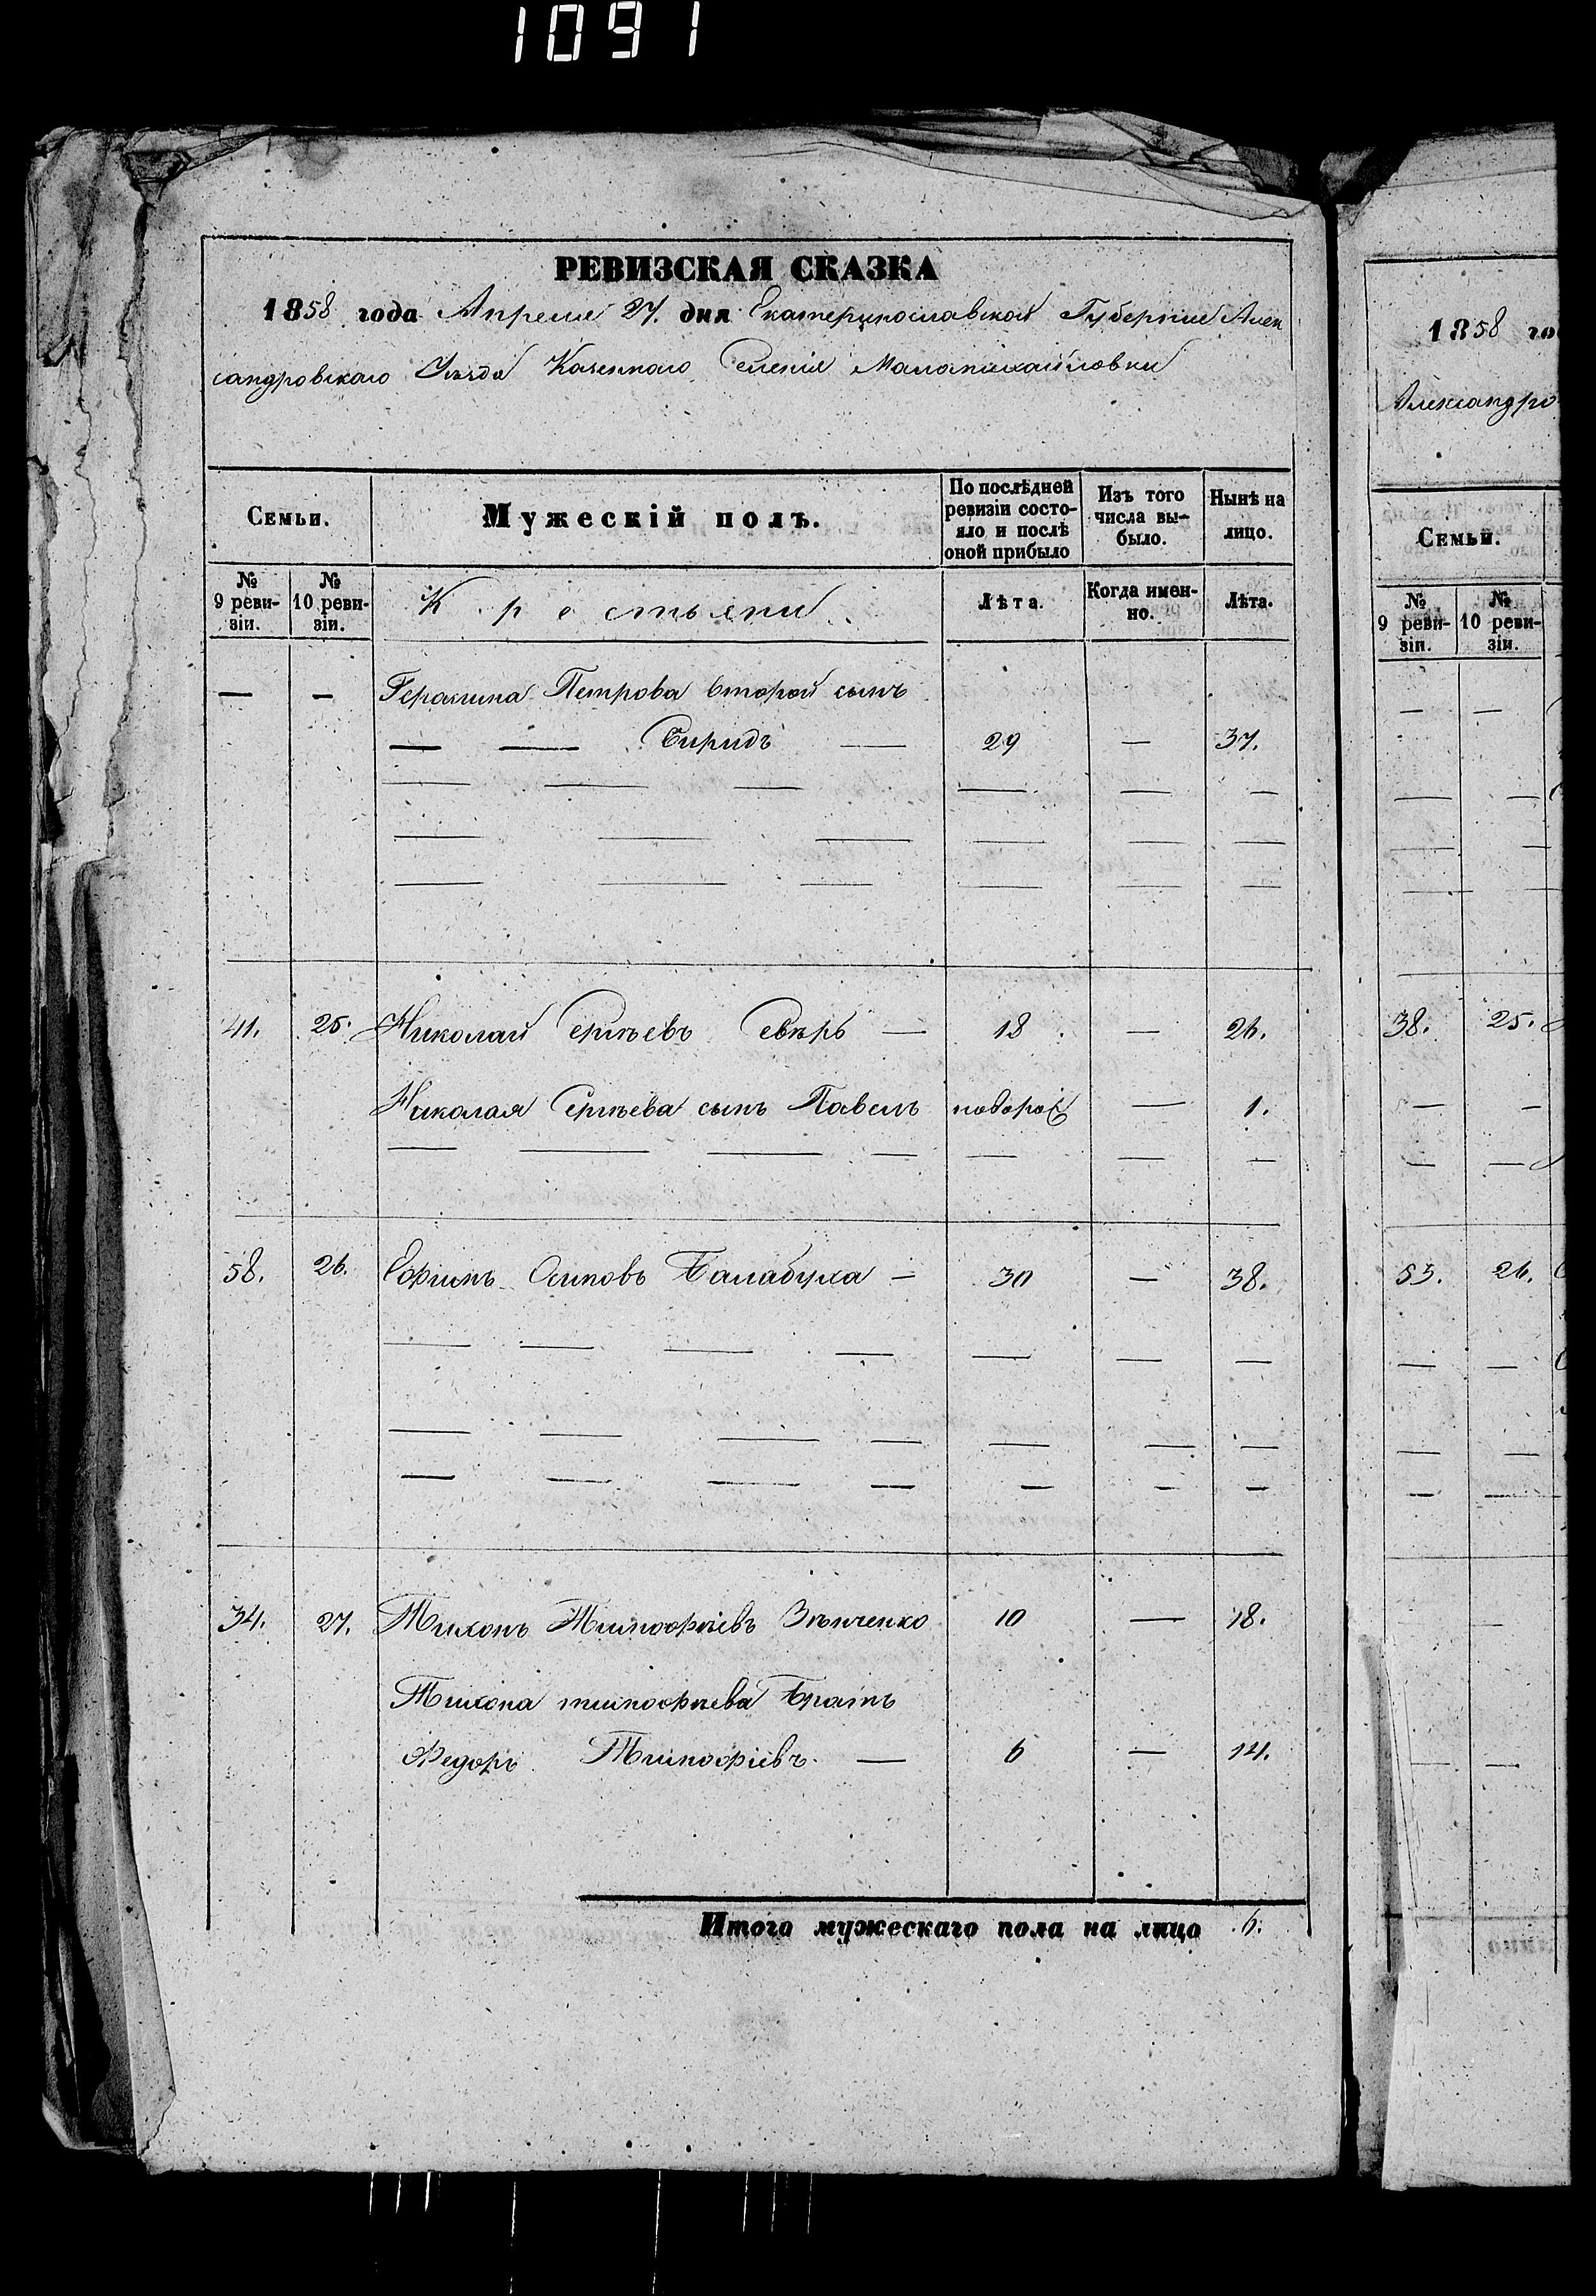 1091
РЕВИЗСКАЯ СКАЗКА
1858 года Апреля 27. дня Екатеринославской Губернии Алек
сандровскаго Уѣзда Казеннаго Селенія Маломихайловки
Семьи.
Мужескій полъ.
По послѣдней ревизіи состояло и послѣ оной прибыло
Изъ того числа вы-было.
Нынѣ на лицо.
№ 9 реви-зіи.
№ 10 реви-зіи.
Крестьяни
Лѣта.
Когда имен-но.
Лѣта.
— — Герасима Петрова второй сынъ
— — Спиридъ — 29 — 37.
41. 25. Николай Сергѣевъ Свѣръ — 18 — 26.
Николая Сергѣева сынъ Павелъ новорож — 1.
58. 26. Ефимъ Осиповъ Балабуха — 30 — 38.
34. 27. Тихонъ Тимофѣевъ Зѣнченко 10 — 18.
Тихона тимофѣева Братъ
Федоръ Тимофіевъ — 6 — 14.
Итого мужескаго пола на лицо 6.
1858 го
Александро
Семьи.
№ 9 реви-зіи.
№ 10 реви-зіи.
38. 25.
53. 26.